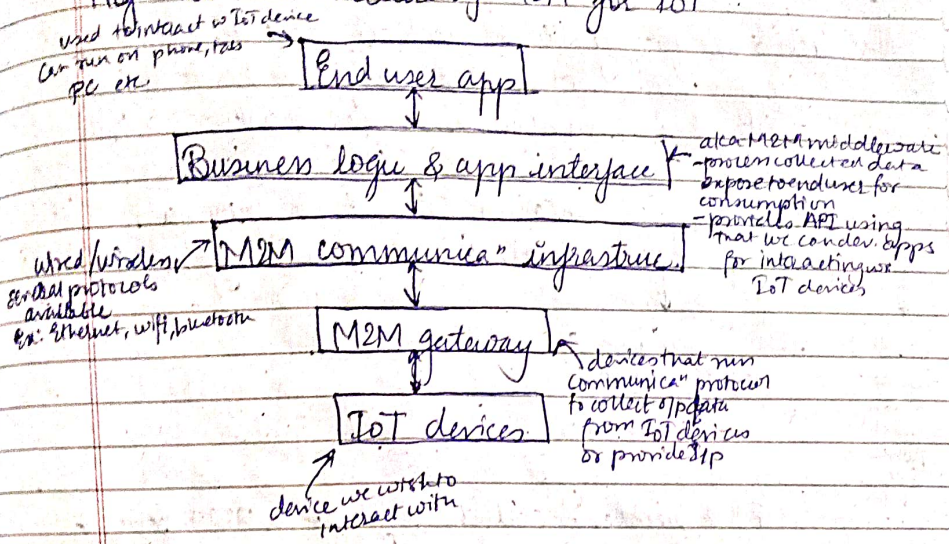 used to interact w IoT device
Can run on phone, tabs
PC etc
End user app
Business logic & app interface
aka M2M middleware
- process collected data
expose to end user for
consumption
- provides API using
that we can dev. apps
for interacting w
IoT devices
M2M communicaⁿ infrastruc.
wired/wireless
several protocols
available
Ex: Ethernet, wifi, bluetooth
M2M gateway
devices that run
communicaⁿ protocol
to collect o/p data
from IoT devices
or provide I/p
IoT devices
device we wish to
interact with